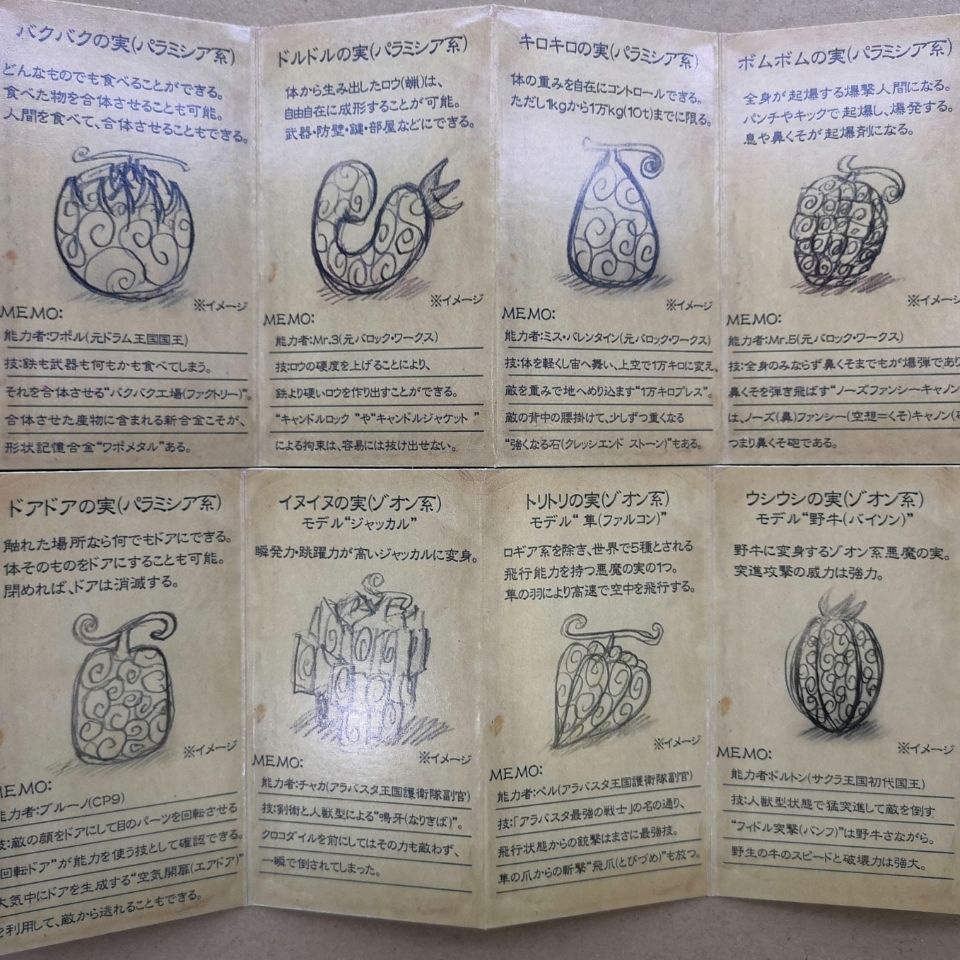 バクバクの実(パラミシア系)
どんなものでも食べることができる。
食べた物を合体させることも可能。
人間を食べて、合体させることもできる。
※イメージ
MEMO:
能力者:ワポル(元ドラム王国国王)
技:鉄も武器も何もかも食べてしまう。
それを合体させる"バクバク工場(ファクトリー)"。
合体させた産物に含まれる新合金こそが、
形状記憶合金"ワポメタル"ある。
ドルドルの実(パラミシア系)
体から生み出したロウ(蝋)は、
自由自在に成形することが可能。
武器・防壁・鍵・部屋などにできる。
※イメージ
MEMO:
能力者:Mr.3(元バロック・ワークス)
技:ロウの硬度を上げることにより、
鉄より硬いロウを作り出すことができる。
"キャンドルロック "や"キャンドルジャケット "
による拘束は、容易には抜け出せない。
キロキロの実(パラミシア系)
体の重みを自在にコントロールできる。
ただし1kgから1万kg(10t)までに限る。
※イメージ
MEMO:
能力者:ミス・バレンタイン(元バロック・ワークス)
技:体を軽くし宙へ舞い、上空で1万キロに変え、
敵を重みで地へめり込ます"1万キロプレス"。
敵の背中の腰掛けて、少しずつ重くなる
"強くなる石(クレッシエンド ストーン)"もある。
ボムボムの実(パラミシア系)
全身が起爆する爆撃人間になる。
パンチやキックで起爆し、爆発する。
息や鼻くそが起爆剤になる。
※イメージ
MEMO:
能力者:Mr.5(元バロック・ワークス)
技:全身のみならず鼻くそまでもが爆弾であり
鼻くそを弾き飛ばす"ノーズファンシーキャノン
は、ノーズ(鼻)ファンシー(空想=くそ)キャノン(
つまり鼻くそ砲である。
ドアドアの実(パラミシア系)
触れた場所なら何でもドアにできる。
体そのものをドアにすることも可能。
閉めれば、ドアは消滅する。
※イメージ
MEMO:
能力者:ブルーノ(CP9)
技:敵の顔をドアにして目のパーツを回転させる
回転ドア"が能力を使う技として確認できる。
大気中にドアを生成する"空気開扉(エアドア)"
を利用して、敵から逃れることもできる。
イヌイヌの実(ゾオン系)
モデル"ジャッカル"
瞬発力・跳躍力が高いジャッカルに変身。
※イメージ
MEMO:
能力者:チャカ(アラバスタ王国護衛隊副官)
技:剣術と人獣型による"鳴牙(なりきば)"。
クロコダイルを前にしてはその力も敵わず、
一瞬で倒されてしまった。
トリトリの実(ゾオン系)
モデル" 隼(ファルコン)"
ロギア系を除き、世界で5種とされる
飛行能力を持つ悪魔の実の1つ。
隼の羽により高速で空中を飛行する。
※イメージ
MEMO:
能力者:ペル(アラバスタ王国護衛隊副官)
技:「アラバスタ最強の戦士」の名の通り、
飛行状態からの銃撃はまさに最強技。
隼の爪からの斬撃"飛爪(とびづめ)"も放つ。
ウシウシの実(ゾオン系)
モデル"野牛(バイソン)"
野牛に変身するゾオン系悪魔の実。
突進攻撃の威力は強力。
※イメージ
MEMO:
能力者:ドルトン(サクラ王国初代国王)
技:人獣型状態で猛突進して敵を倒す
"フィドル突撃(バンフ)"は野牛さながら。
野生の牛のスピードと破壊力は強大。